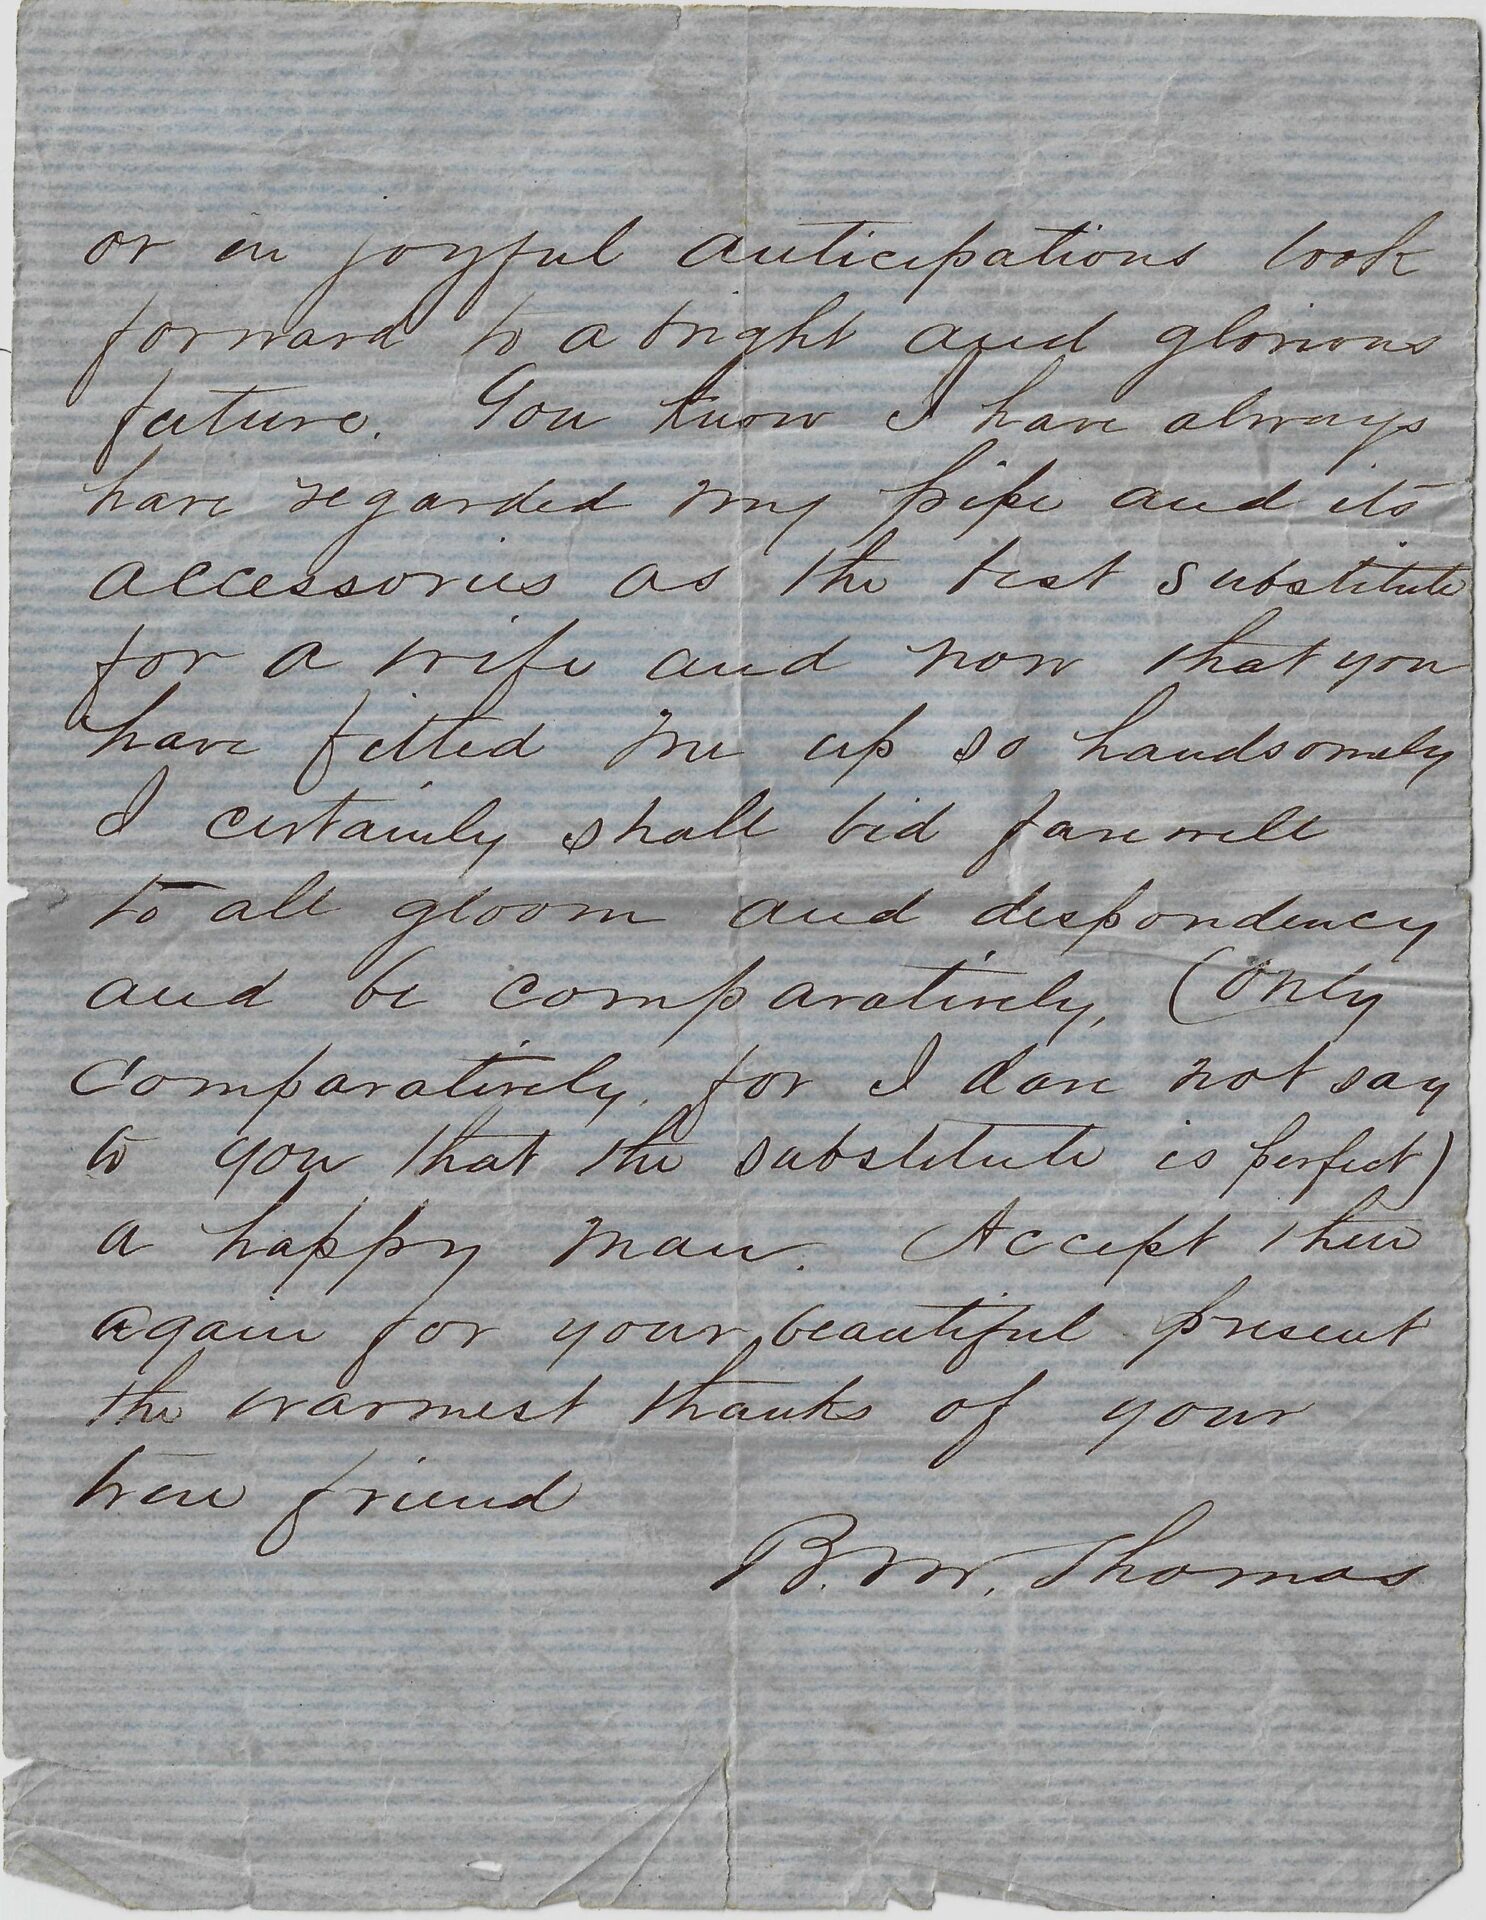 or in joyful anticipations look
forward to a bright and glorious
future. You know I have always
have regarded my pipe and its
accessories as the best substitute
for a wife and now that you
have fitted me up so handsomely
I certainly shall bid farewell
to all gloom and despondency
and be comparatively, (only
comparatively, for I dare not say
to you that the substitute is perfect)
a happy man. Accept then
again for your beautiful present
the warmest thanks of your
true friend
B. W. Thomas